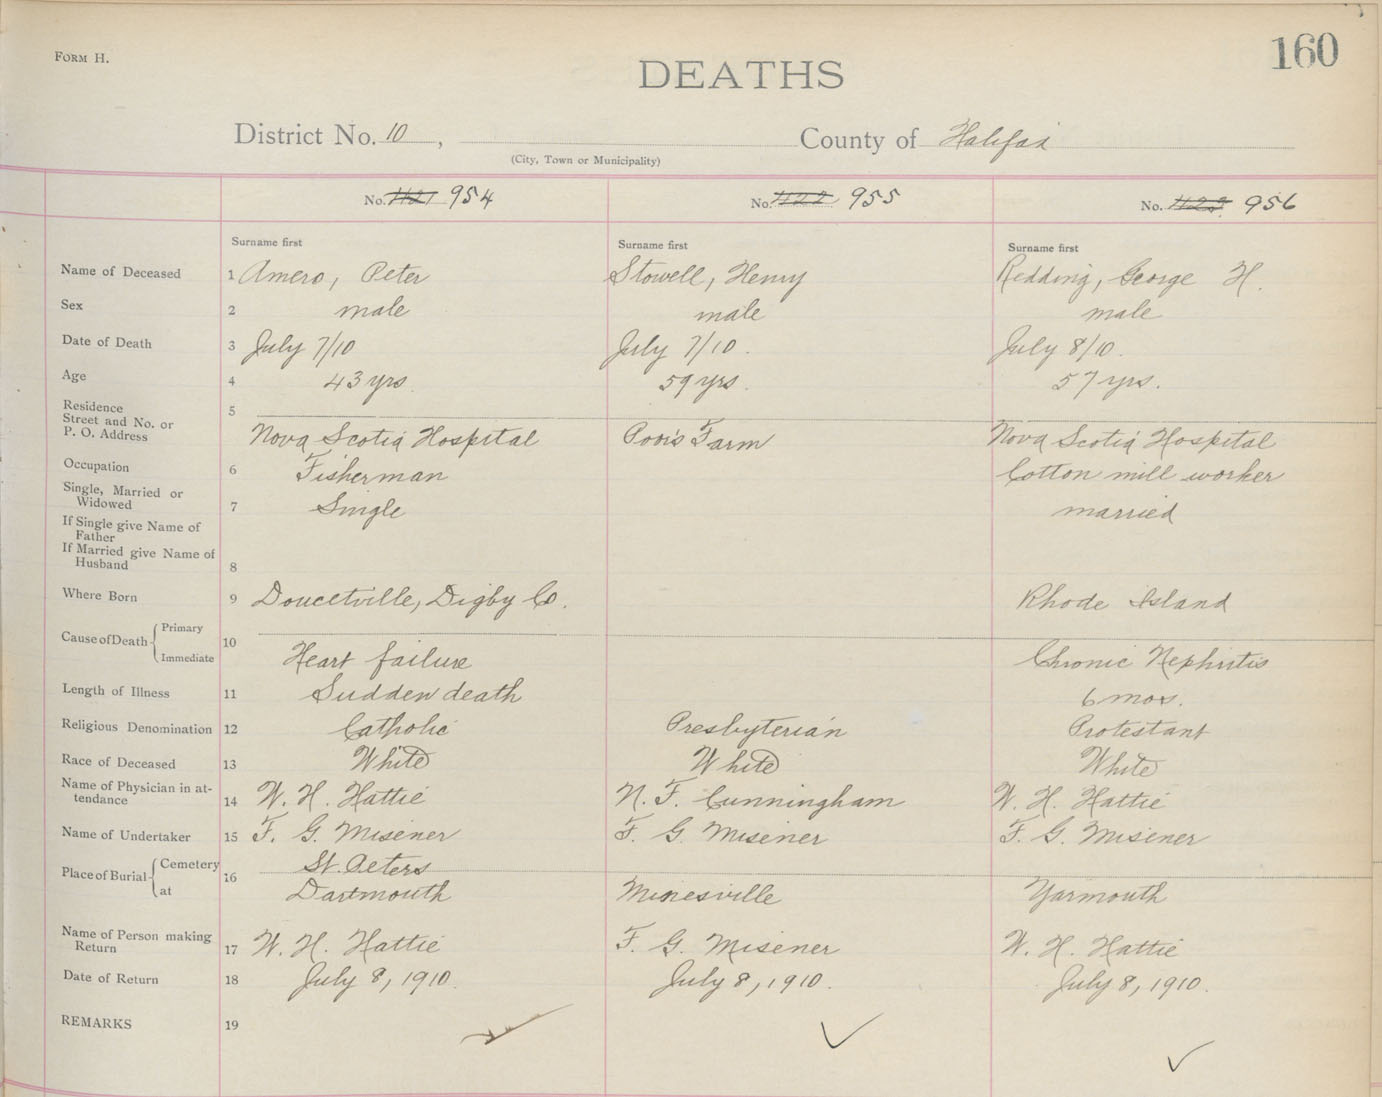 FORM H.
160
DEATHS
District No. 10, County of Halifax
(City, Town or Municipality)
No. 1121 954 No. 1122 955 No. 1123 956
Surname first Surname first Surname first
Name of Deceased 1 Amero, Peter Stowell, Henry Redding, George H.
Sex 2 male male male
Date of Death 3 July 7/10 July 7/10. July 8/10.
Age 4 43 yrs. 59 yrs. 57 yrs.
Residence 5
Street and No. or
P. O. Address Nova Scotia Hospital Poor's Farm Nova Scotia Hospital
Occupation 6 Fisherman Cotton mill worker
Single, Married or
Widowed 7 Single married
If Single give Name of
Father
If Married give Name of
Husband 8
Where Born 9 Doucetville, Digby Co. Rhode Island
Cause of Death Primary 10
Immediate Heart failure Chronic Nephritis
Length of Illness 11 Sudden death 6 mos.
Religious Denomination 12 Catholic Presbyterian Protestant
Race of Deceased 13 White White White
Name of Physician in at-
tendance 14 W. H. Hattie N. F. Cunningham W. H. Hattie
Name of Undertaker 15 F. G. Misener F. G. Misener F. G. Misener
Place of Burial Cemetery 16 St. Peters
at Dartmouth Minesville Yarmouth
Name of Person making
Return 17 W. H. Hattie F. G. Misener W. H. Hattie
Date of Return 18 July 8, 1910. July 8, 1910. July 8, 1910.
REMARKS 19